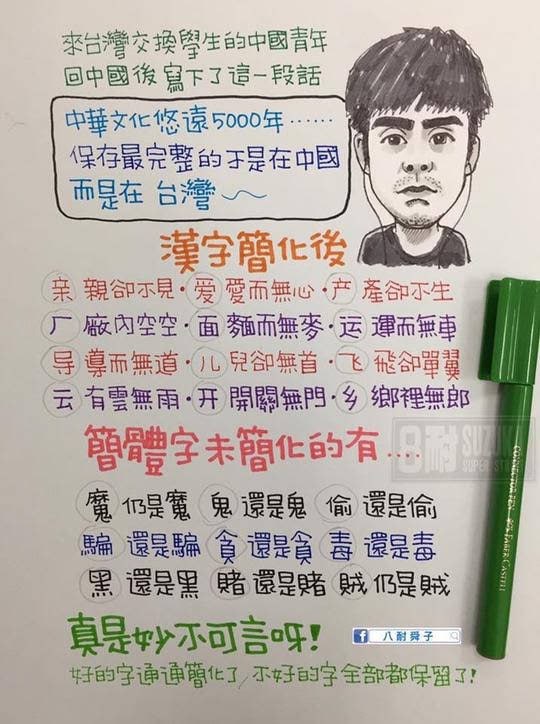 來台灣交換學生的中國青年
回中國後寫下了這一段話
中華文化悠遠5000年⋯⋯
保存最完整的不是在中國
而是在 台灣～
漢字簡化後
亲 親卻不見·爱 愛而無心·产 產卻不生
厂 廠內空空·面 麵而無麥·运 運而無車
导 導而無道·儿 兒卻無首·飞 飛卻單翼
云 有雲無雨·开 開關無門·乡 鄉裡無郎
簡體字未簡化的有....
魔 仍是魔 鬼 還是鬼 偷 還是偷
騙 還是騙 貪 還是貪 毒 還是毒
黑 還是黑 賭 還是賭 賊 仍是賊
真是妙不可言呀!
好的字通通簡化了,不好的字全部都保留了!
f 八耐舜子
8耐 SUZUKI
SUPER
CONNECTOR PEN
FABER CASTELL